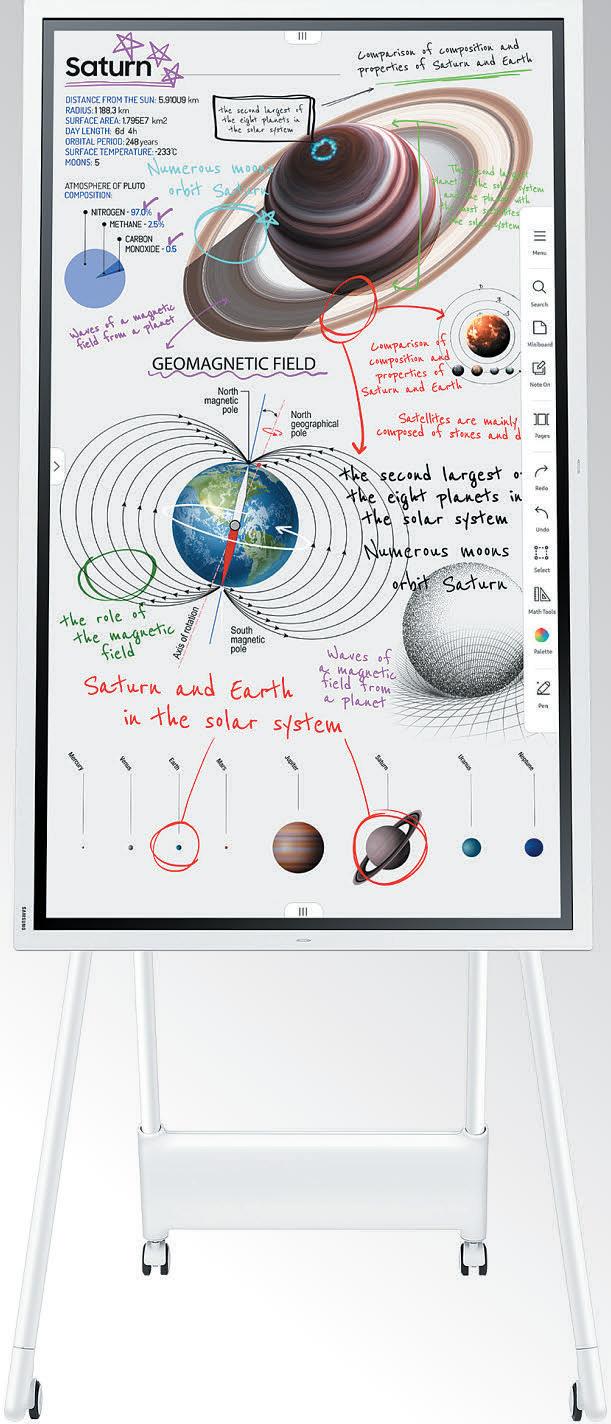 Saturn
Comparison of composition and
properties of Saturn and Earth
DISTANCE FROM THE SUN: 5.910U9 km
RADIUS: 1 188.3 km
SURFACE AREA: 1.795E7 km2
DAY LENGTH: 6d 4h
ORBITAL PERIOD: 248 years
SURFACE TEMPERATURE: -233°C
MOONS: 5
the second largest of
the eight planets in
the solar system
Numerous moons
orbit Saturn
The second largest
planet in the solar system
and the planet with
the most satellites
the solar system
ATMOSPHERE OF PLUTO
COMPOSITION:
NITROGEN - 97.0%
METHANE - 2.5%
CARBON
MONOXIDE - 0.5
Waves of a magnetic
field from a planet
GEOMAGNETIC FIELD
Comparison of
composition and
properties of
Saturn and Earth
Satellites are mainly
composed of stones and d
North
magnetic
pole
North
geographical
pole
the second largest o
the eight planets in
the solar system
Numerous moons
orbit Saturn
the role of
the magnetic
field
Axis of rotation
South
magnetic
pole
Waves of
a magnetic
field from
a planet
Saturn and Earth
in the solar system
Mercury
Venus
Earth
Mars
Jupiter
Saturn
Uranus
Neptune
Menu
Search
Miniboard
Note On
Pages
Redo
Undo
Select
Math Tools
Palette
Pen
SAMSUNG